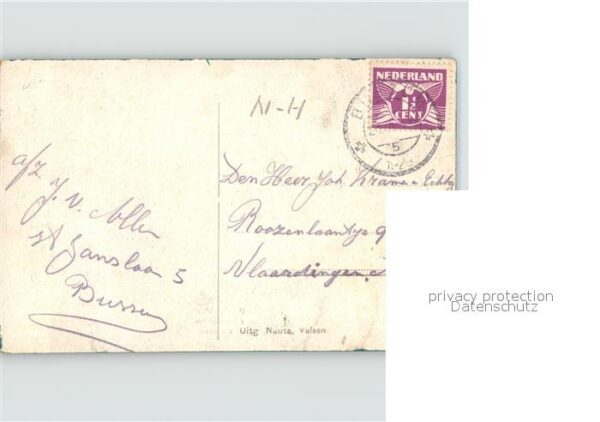 N-H
NEDERLAND
1½
CENT
5
a/z
J. v. Allen
5
Bussum
Den Heer Joh.
Roozenlaantje 9
Vlaardingen
Uitg Nauta, Velsen
privacy protection
Datenschutz